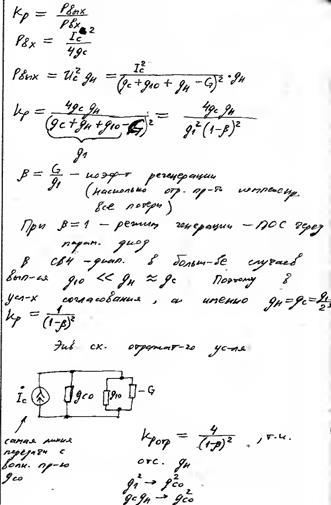 Kр = Pвых / Pвх
Pвх = Ic² / 4gc
Pвых = Uc² gн = Ic² / (gc + g10 + gн − G)² · gн
Kр = 4gc gн / (gc + gн + g10 − G)² = 4gc gн / g1² (1−β)²
g1
β = G / g1 – коэф-т регенерации
(насколько отр. пр-ть компенсир.
все потери)
При β = 1 – режим генерации – ПОС через
парам. диод
В СВЧ-диап. в больш-ве случаев
вып-ся g10 << gн ≈ gc Поэтому в
усл-х согласования, а именно gн = gc = g1/2
Kр = 1 / (1−β)²
Экв сх. отражат-го ус-ля
İc gc0 g10 −G
самая линия
передачи с
волн. пр-ю
gc0
Kр отр = 4 / (1−β)² , т.к.
отс. gн
g1² → gc0²
gc gн → gc0²